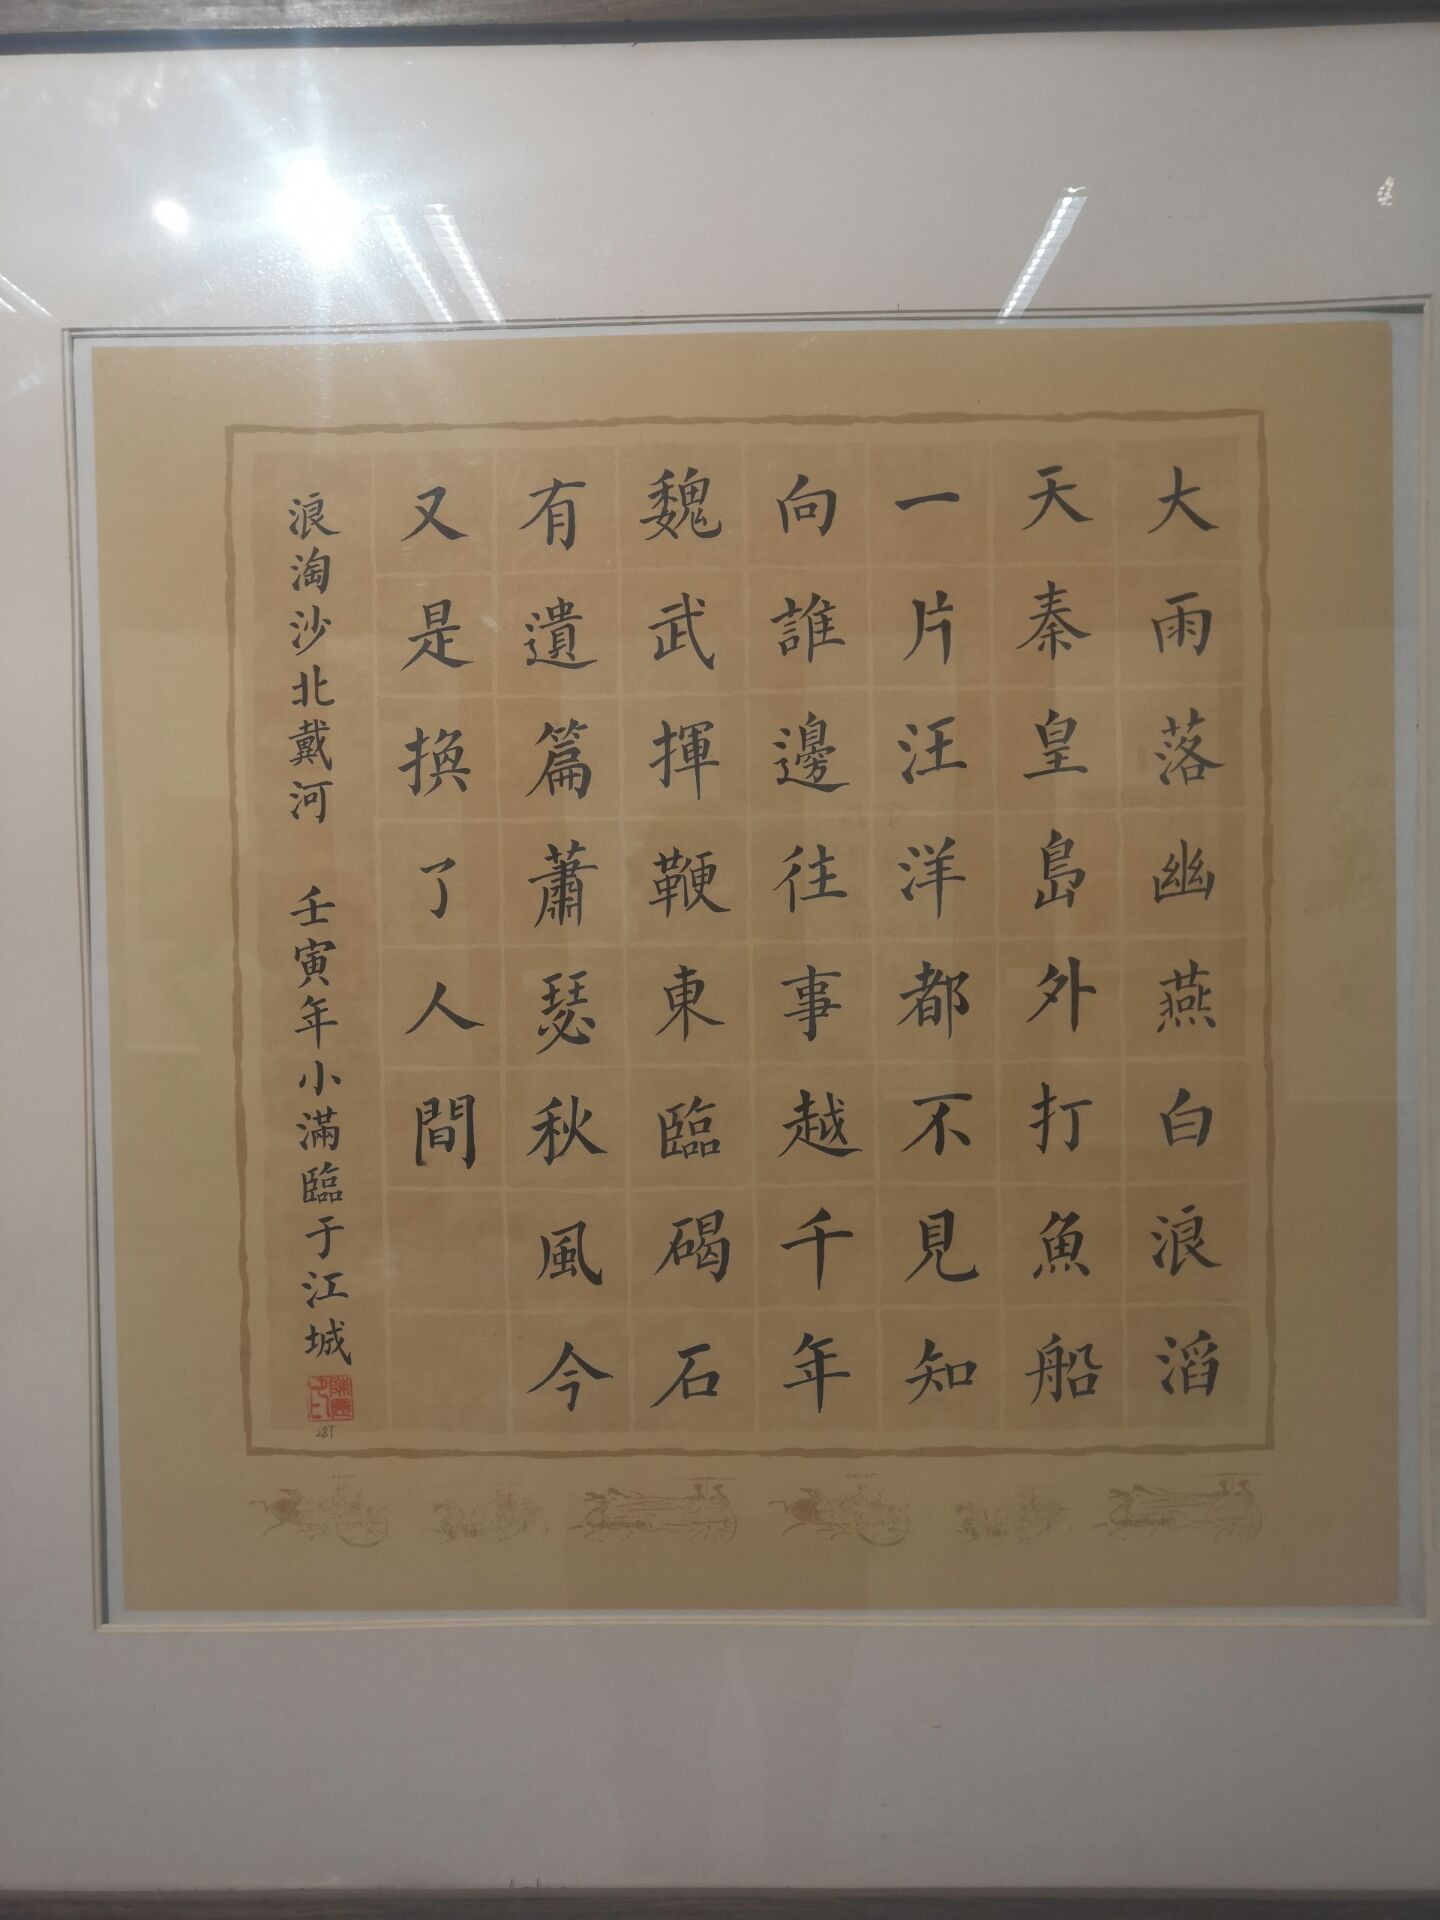 大雨落幽燕白浪滔
天秦皇島外打魚船
一片汪洋都不見知
向誰邊往事越千年
魏武揮鞭東臨碣石
有遺篇蕭瑟秋風今
又是換了人間
浪淘沙北戴河 壬寅年小滿臨于江城
287